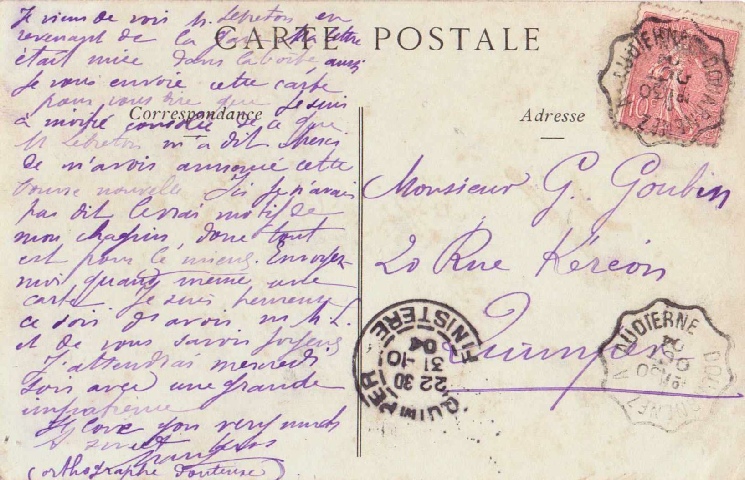 CARTE POSTALE
Correspondance
Adresse
Je viens de voir M. Lebreton en
revenant de la gare. Ma lettre
était mise dans la boîte, aussi
je vous envoie cette carte
pour vous dire que je suis
à moitié consolée de ce que
M Lebreton m'a dit. Merci
de m'avoir annoncé cette
bonne nouvelle. Ici je n'avais
pas dit le vrai motif de
mon chagrin, donc tout
est pour le mieux. Envoyez-
moi quand même une
carte. Je suis heureuse
ce soir d'avoir vu M. L.
et de vous savoir joyeux
J'attendrai mercredi
soir avec une grande
impatience
I love you very much
(orthographe douteuse)
Monsieur G. Goubin
20 Rue Kéréon
Quimper
AUDIERNE
QUIMPER
22 30
31 -10
04
FINISTERE
AUDIERNE